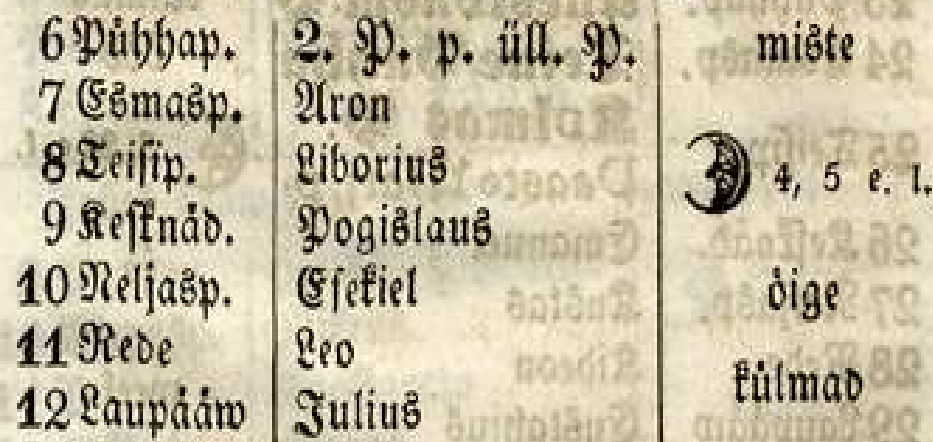 6 Pühhap. 2. P. p. üll. P. miste
7 Esmasp. Aron
8 Teisip. Liborius 4, 5 e. l.
9 Kesknäd. Pogislaus
10 Neljasp. Esekiel öige
11 Rede Leo
12 Laupääw Julius külmad